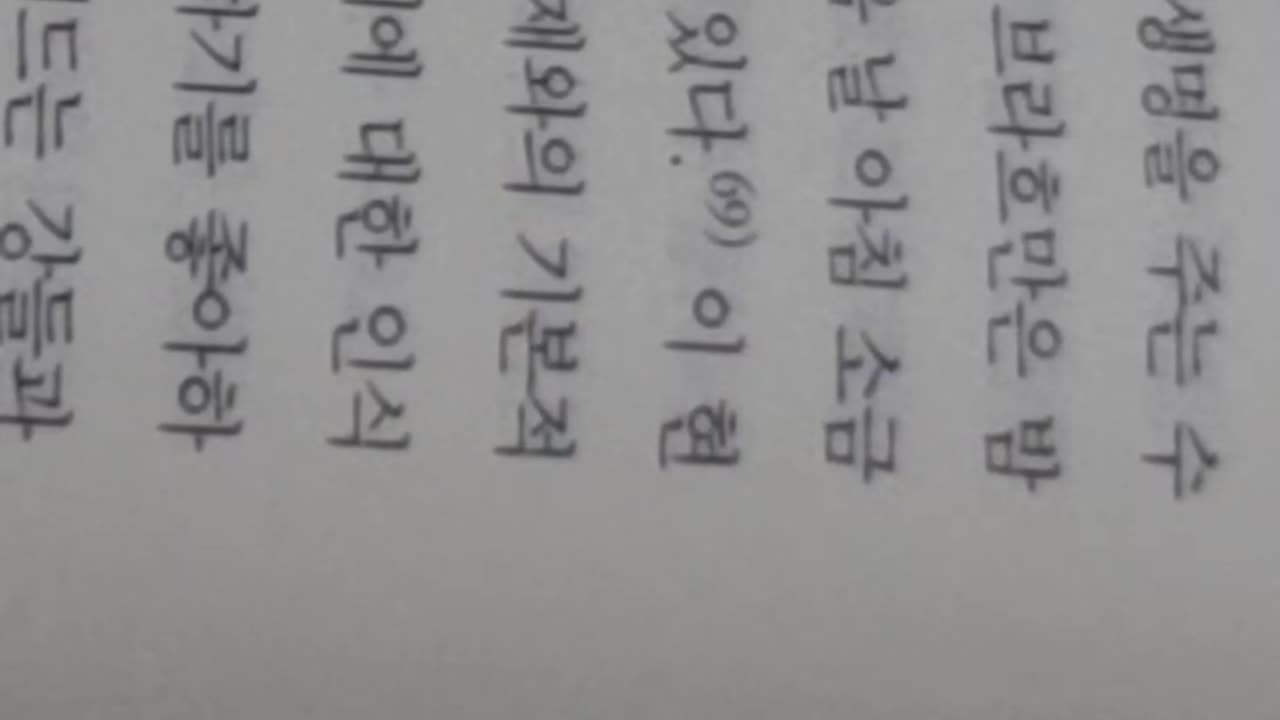 생명을 주는 수
브라흐만은 밤
날 아침 소금
있다.69) 이 현
제와의 기본적
에 대한 인식
기를 좋아하
드는 강들과